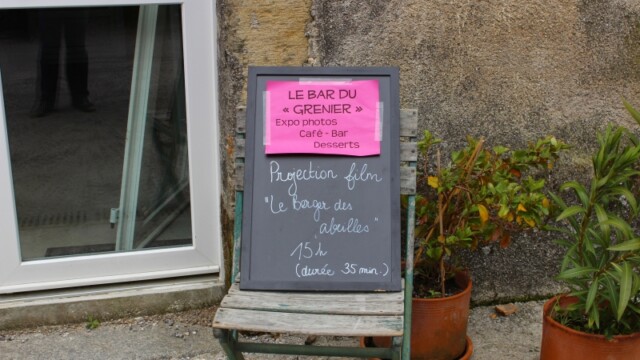 LE BAR DU
« GRENIER »
Expo photos
Café - Bar
Desserts
Projection film
"Le Berger des
abeilles"
15h
(durée 35 min.)